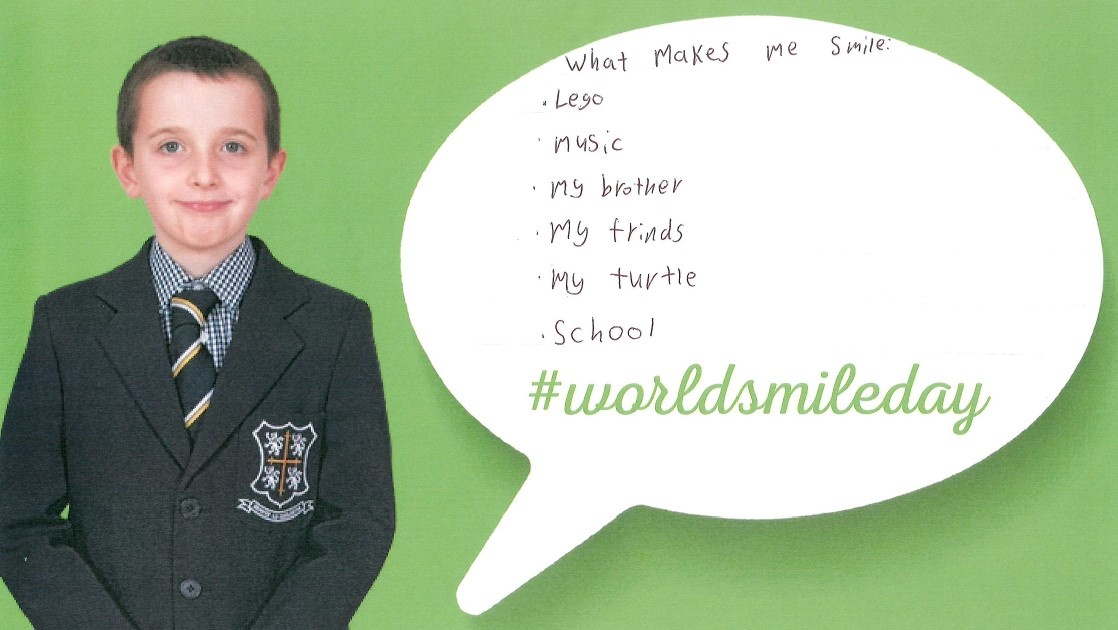 What makes me smile:
· Lego
· music
· my brother
· My frinds
· My turtle
· School
#worldsmileday